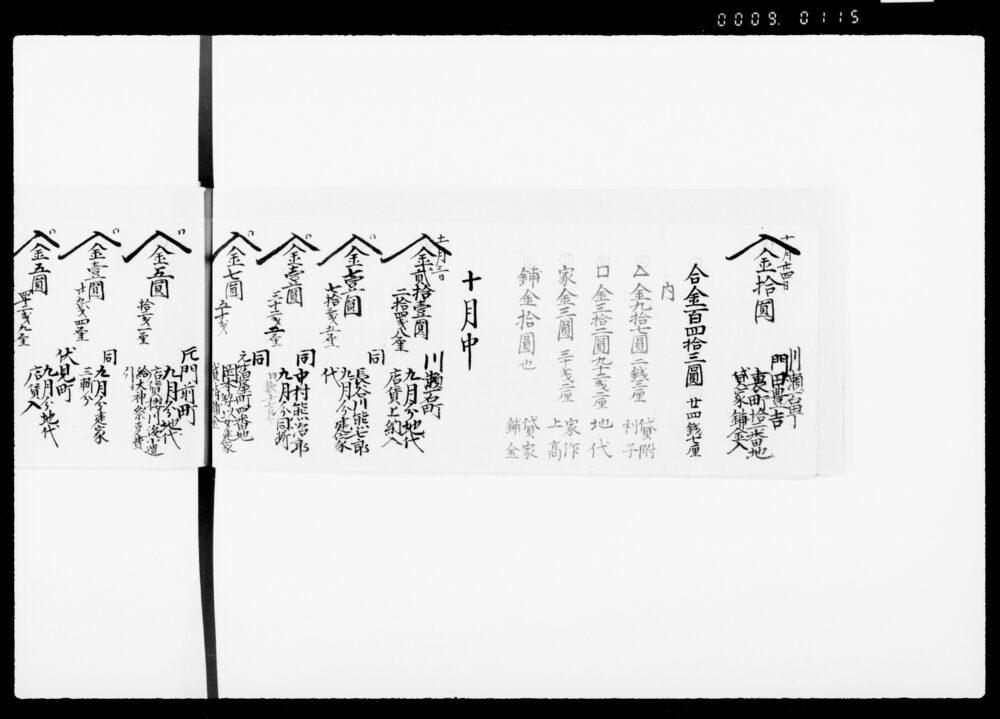 0009. 0115
十月廿四日
金拾圓
川瀬石町
門田豊吉
裏町拾二番地
貸家鋪金入
合金百四拾三圓
廿四銭七厘
内
△金九拾七圓二銭三厘
貸附
利子
口金三拾二圓九十二戔二厘
地代
家金三圓三十戔二厘
家作
上高
鋪金拾圓也
貸家
鋪金
十月中
十一月三日
金貳拾壹圓
二拾四戔八厘
川瀬石町
九月分地代
店賃上納入
金七圓
七拾戔五厘
同
長谷川熊七郎
九月分建家
代
金壹圓
三十二戔五厘
同
中村熊宮郎
九月分同断
金七圓
五十戔
同
元𦾔屋町四番地
金五圓
拾戔一厘
元門前町
九月分地代
引
金壹圓
廿九戔四厘
同
九月分建家
三軒分
金五圓
伏見町
九月分地代
店賃入